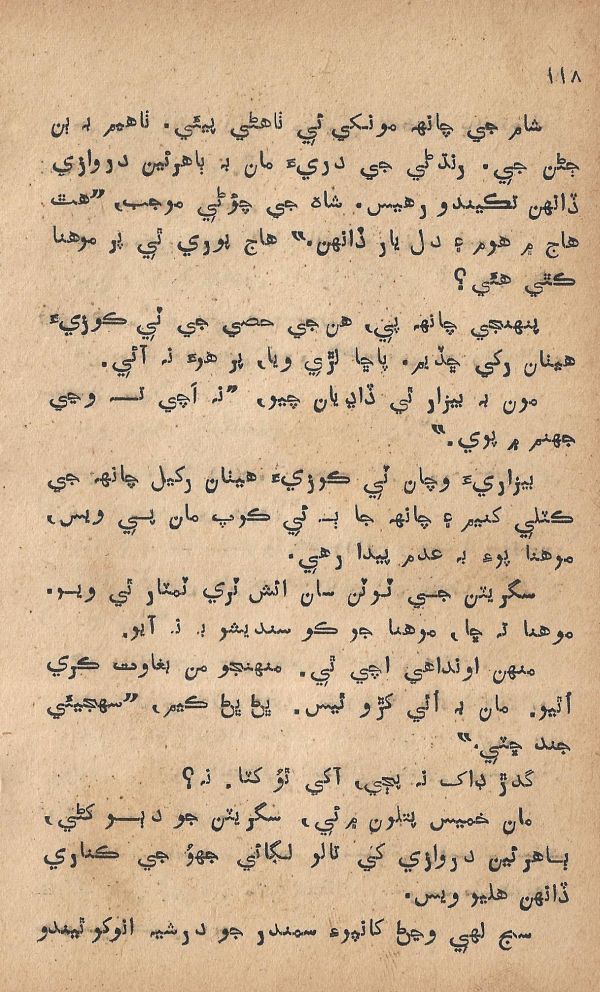 ١١٨
شام جي چانهه مونکي ئي ٺاهڻي پيئي. ٺاهيم به ٻن
ڄڻن جي. رنڌڻي جي دريءَ مان به ٻاهرئين دروازي
ڏانهن تڪيندو رهيس. شاهه جي چؤڻي موجب، ”هٿ
هاج ۾ هوم ۽ دل يار ڏانهن.“ هاج پوري ٿي پر موهنا
ڪٿي هئي؟
پنهنجي چانهه پي، هن جي حصي جي ٽي ڪوزيءَ
هيٺان رکي ڇڏيم. پاڇا لڙي ويا، پر هوءَ نه آئي.
مون به بيزار ٿي ڏاڍيان چيو، ”نه اَچي تــــه وڃي
جهنم ۾ پوي.“
بيزاريءَ وچان ٽي ڪوزيءَ هيٺان رکيل چانهه جي
ڪٽلي کنيم ۽ چانهه جا ٻــه ئي ڪوپ مان پــي ويس،
موهنا پوءِ به عدم پيدا رهي.
سگريٽن جــي ٽــوٽن سان ائش ٽري ٽمٽار ٿي ويــو.
موهنا ته ڇا، موهنا جو ڪو سنديشو به نه آيو.
منهن اونداهي اچي ٿي. منهنجو من بغاوت ڪري
اُٿيو. مان به اُٿي کڙو ٿيس. ڀڻ ڀڻ ڪيم، ”سهجيئي
جند ڇٽي.“
گدڙ ڊاک نه پڄي، آکي ٿوُ کٽا. نه؟
مان خميس پتلون ۾ ئي، سگريٽن جو دٻــو کڻي،
ٻــاهرئين دروازي کي تالو لڳائي جهوُ جي ڪناري
ڏانهن هليو ويس.
سج لهي وڃڻ کانپوءِ سمندر جو درشيه انوکو ٿيندو